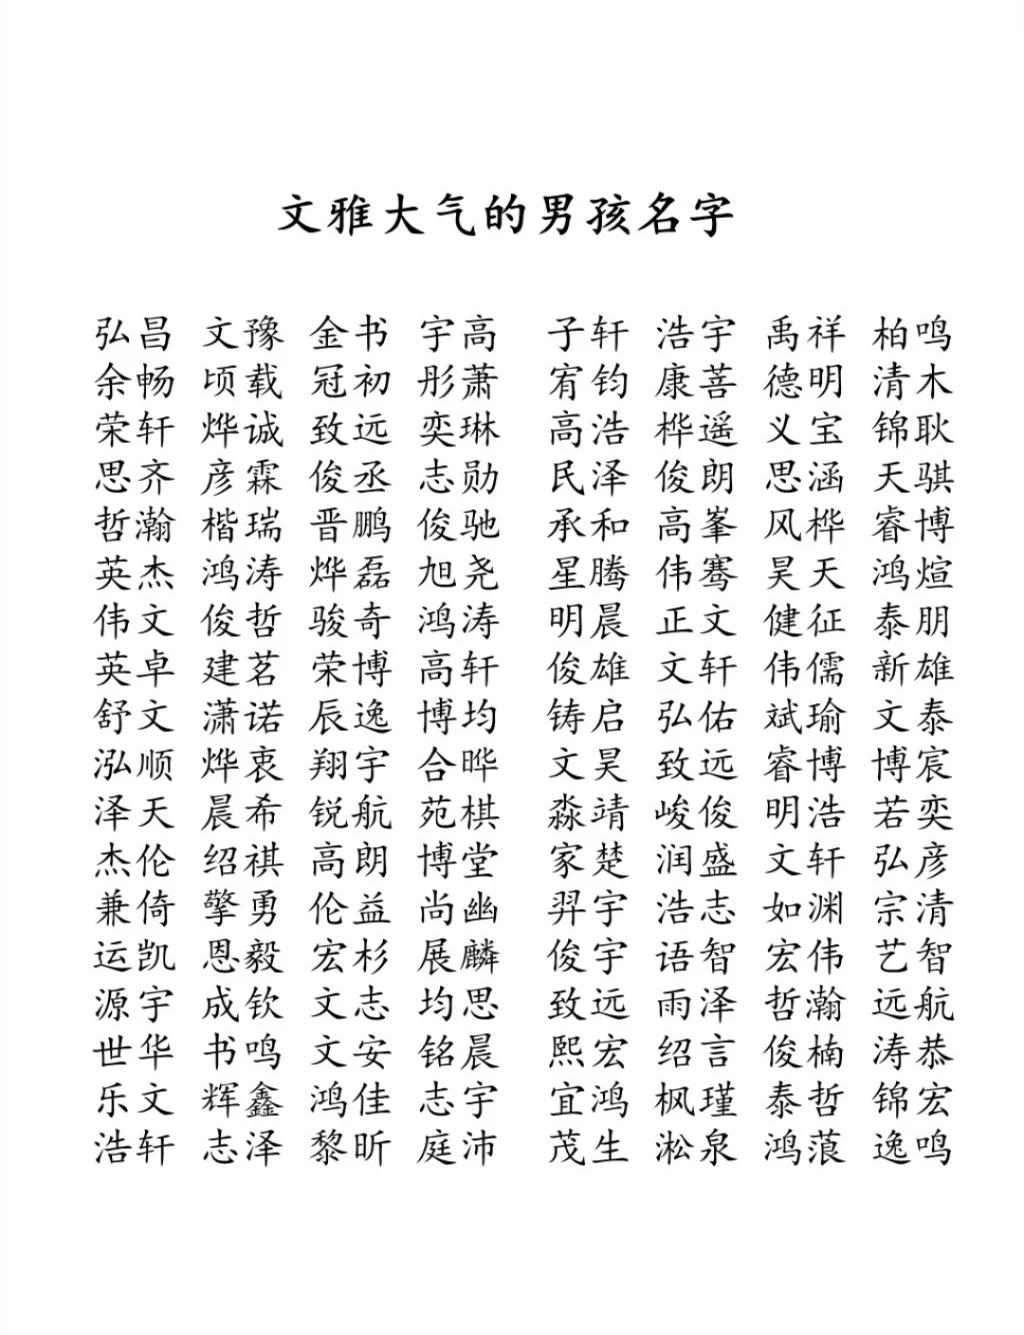 文雅大气的男孩名字
弘昌 文豫 金书 宇高 子轩 浩宇 禹祥 柏鸣
余畅 顷载 冠初 彤萧 宥钧 康菩 德明 清木
荣轩 烨诚 致远 奕琳 高浩 桦遥 义宝 锦耿
思齐 彦霖 俊丞 志勋 民泽 俊朗 思涵 天骐
哲瀚 楷瑞 晋鹏 俊驰 承和 高峯 风桦 睿博
英杰 鸿涛 烨磊 旭尧 星腾 伟骞 昊天 鸿煊
伟文 俊哲 骏奇 鸿涛 明晨 正文 健征 泰朋
英卓 建茗 荣博 高轩 俊雄 文轩 伟儒 新雄
舒文 潇诺 辰逸 博均 铸启 弘佑 斌瑜 文泰
泓顺 烨衷 翔宇 合晔 文昊 致远 睿博 博宸
泽天 晨希 锐航 苑棋 淼靖 峻俊 明浩 若奕
杰伦 绍祺 高朗 博堂 家楚 润盛 文轩 弘彦
兼倚 擎勇 伦益 尚幽 羿宇 浩志 如渊 宗清
运凯 恩毅 宏杉 展麟 俊宇 语智 宏伟 艺智
源宇 成钦 文志 均思 致远 雨泽 哲瀚 远航
世华 书鸣 文安 铭晨 熙宏 绍言 俊楠 涛恭
乐文 辉鑫 鸿佳 志宇 宜鸿 枫瑾 泰哲 锦宏
浩轩 志泽 黎昕 庭沛 茂生 淞泉 鸿蒗 逸鸣